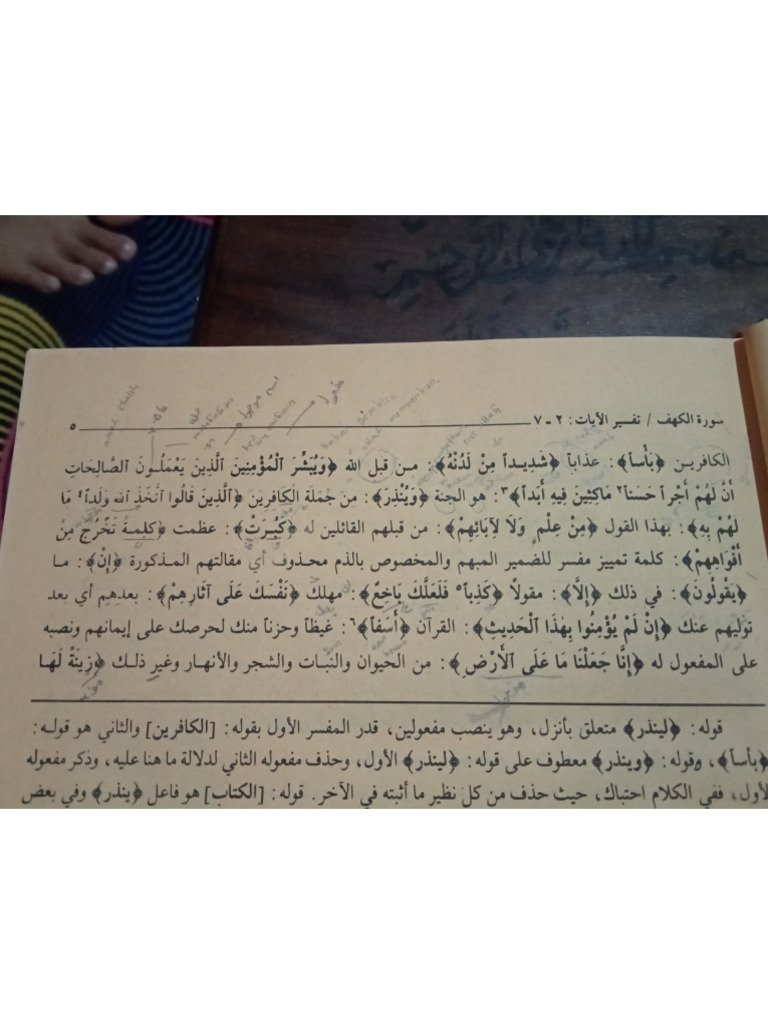 سورة الكهف / تفسير الآيات : ٢ ـ ٧ ٥
الكافرين ﴿بَأْساً﴾ : عذاباً ﴿شَدِيداً مِنْ لَدُنْهُ﴾ : من قبل الله ﴿وَيُبَشِّرَ الْمُؤْمِنِينَ ٱلَّذِينَ يَعْمَلُونَ ٱلصَّالِحَاتِ
أَنَّ لَهُمْ أَجْراً حَسَناً﴾٢ مَاكِثِينَ فِيهِ أَبَداً﴾٣ : هو الجنة ﴿وَيُنْذِرَ﴾ : من جملة الكافرين ﴿ٱلَّذِينَ قَالُوا ٱتَّخَذَ ٱللهُ وَلَداً٤ مَا
لَهُمْ بِهِ﴾ : بهذا القول ﴿مِنْ عِلْمٍ وَلَا لِآبَائِهِمْ﴾ : من قبلهم القائلين له ﴿كَبُرَتْ﴾ : عظمت ﴿كَلِمَةً تَخْرُجُ مِنْ
أَفْوَاهِهِمْ﴾ : كلمة تمييز مفسر للضمير المبهم والمخصوص بالذم محذوف أي مقالتهم المذكورة ﴿إِنْ﴾ : ما
﴿يَقُولُونَ﴾ : في ذلك ﴿إِلَّا﴾ : مقولاً ﴿كَذِباً٥ فَلَعَلَّكَ بَاخِعٌ﴾ : مهلك ﴿نَفْسَكَ عَلَى آثَارِهِمْ﴾ : بعدهم أي بعد
توليهم عنك ﴿إِنْ لَمْ يُؤْمِنُوا بِهَذَا ٱلْحَدِيثِ﴾ : القرآن ﴿أَسَفاً﴾٦ : غيظاً وحزناً منك لحرصك على إيمانهم ونصبه
على المفعول له ﴿إِنَّا جَعَلْنَا مَا عَلَى ٱلْأَرْضِ﴾ : من الحيوان والنبات والشجر والأنهار وغير ذلك ﴿زِينَةً لَهَا
قوله : ﴿لينذر﴾ متعلق بأنزل، وهو ينصب مفعولين، قدر المفسر الأول بقوله : [الكافرين] والثاني هو قوله :
﴿بأساً﴾، وقوله : ﴿وينذر﴾ معطوف على قوله : ﴿لينذر﴾ الأول، وحذف مفعوله الثاني لدلالة ما هنا عليه، وذكر مفعوله
الأول، ففي الكلام احتباك، حيث حذف من كل نظير ما أثبته في الآخر. قوله : [الكتاب] هو فاعل ﴿ينذر﴾ وفي بعض